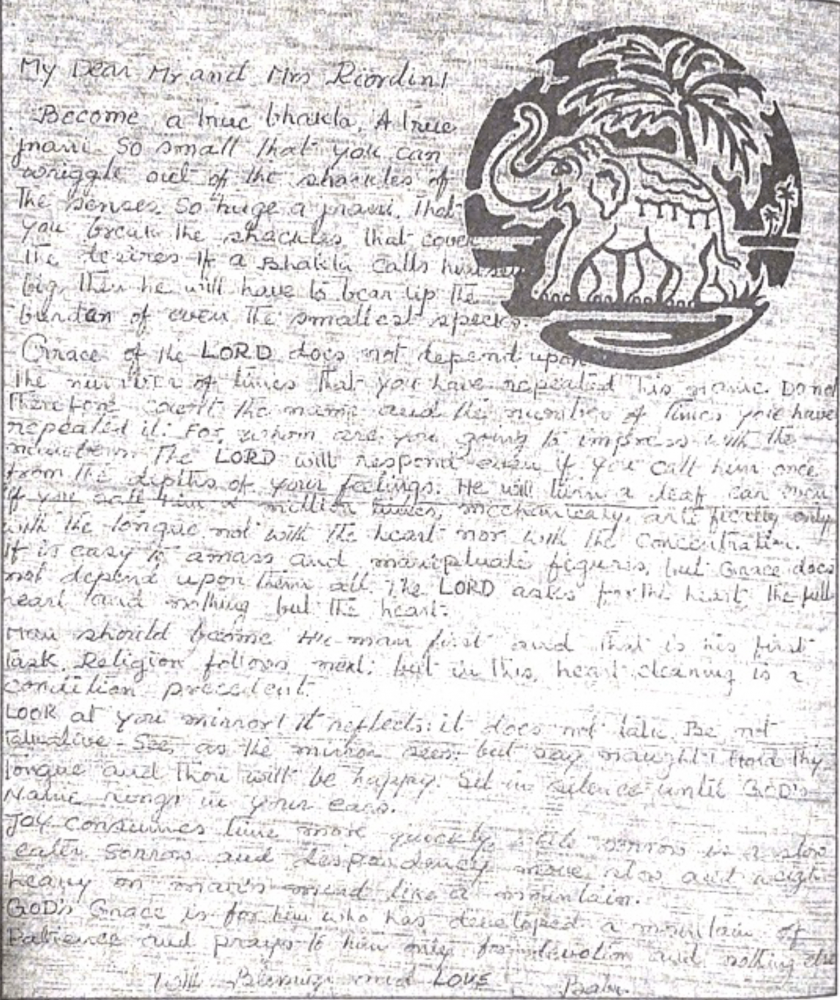 My Dear Mr and Mrs Riordin!
Become a true bhakta. A true
jnani. So small that you can
wriggle out of the shackles of
The senses. So huge a jnani, that
you break the shackles that cover
the desires If a Bhakta calls himself
big, then he will have to bear up the
burden of even the smallest specks.
Grace of the LORD does not depend upon
the number of times that you have repeated his name. Do not
Therefore count the name and the number of times you have
repeated it. For whom are you going to impress with the
numbers. The LORD will respond even if you call him once
from the depths of your feelings. He will turn a deaf ear even
if you call him a million times, mechanicaly, artificially only
with the tongue not with the heart nor with the Concentration.
It is easy to amass and manipluate figures, but Grace does
not depend upon them all. The LORD asks for the heart the full
heart and nothing but the heart.
Man should become Hu-man first and that is his first
task. Religion follows next; but in this, heart cleaning is a
condition precedent.
LOOK at you mirror! it reflects: it does not talk. Be not
talkative - See, as the mirror sees: but say naught! Hold thy
tongue and thou will be happy. Sit in silence until GOD's
Name rings in your ears.
JOY consumes time more quickly, sorrow is a slow
eater. Sorrow and despondency move slow and weigh
heavy on man's mind like a mountain.
GOD's Grace is for him who has developed a mountain of
Patience and prays to him only for devotion and nothing else
With Blessings and LOVE Baba